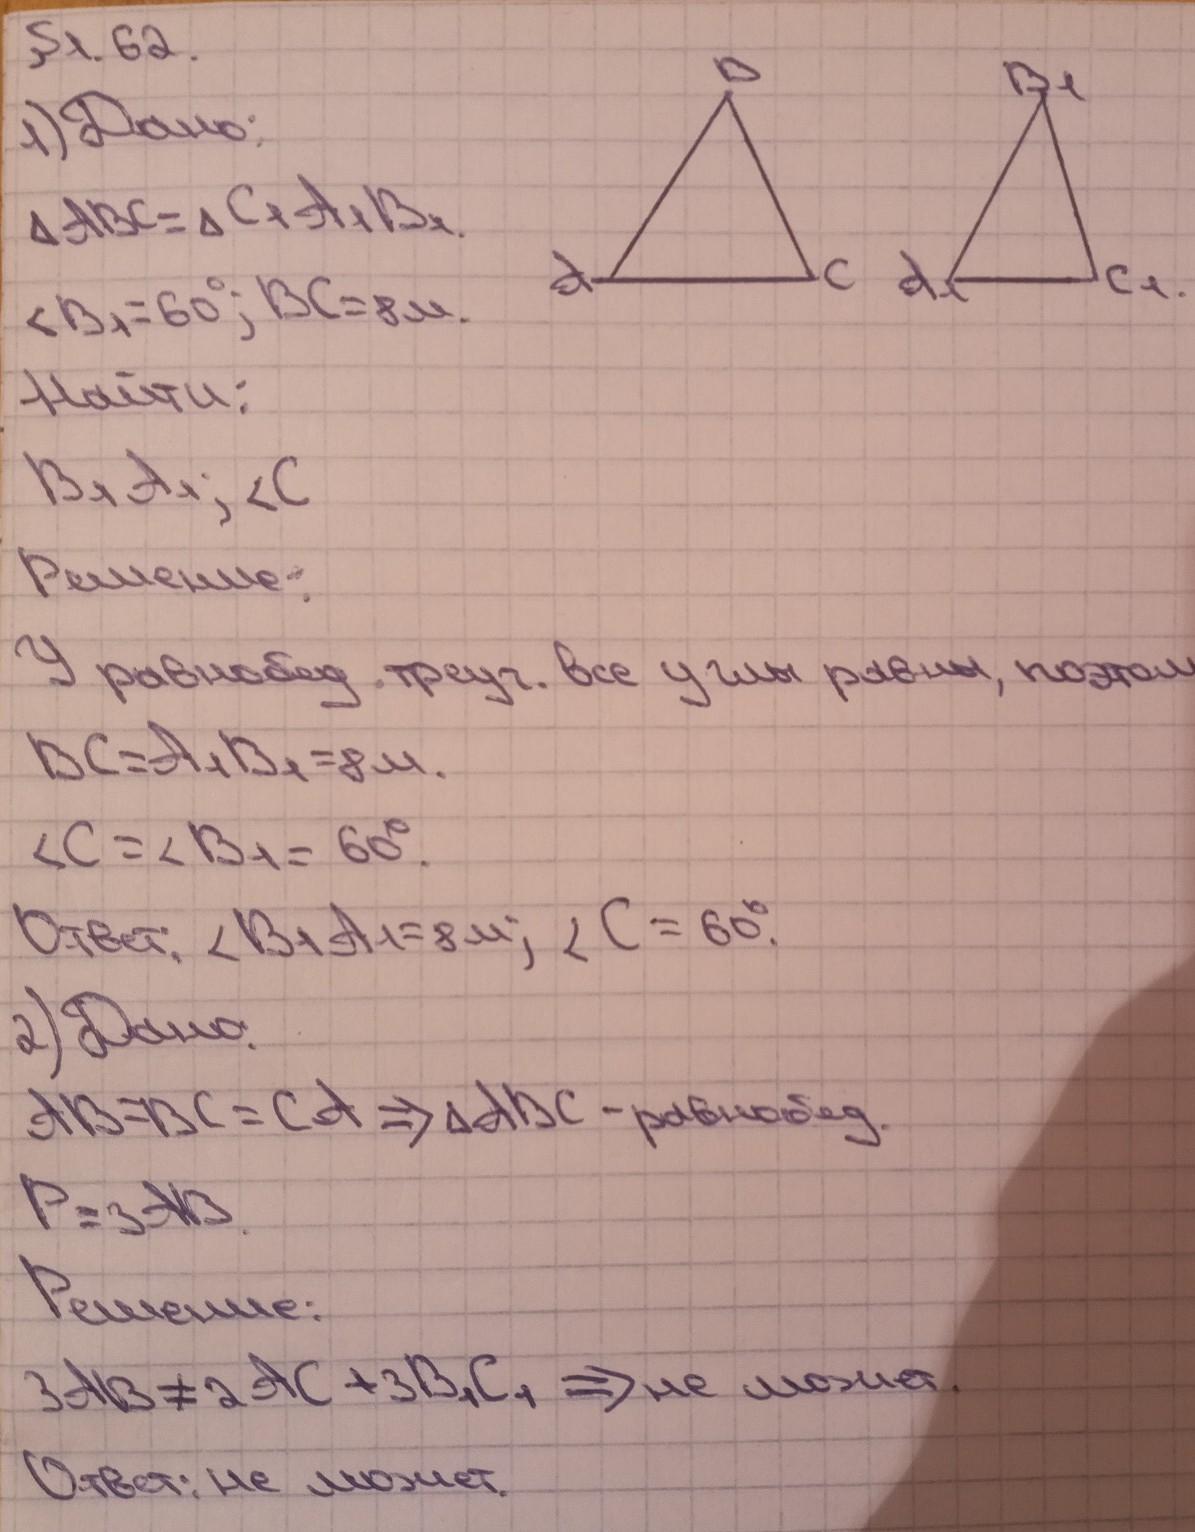 §1. 62.
1) Дано:
B
B₁
∆ABC=∆C₁A₁B₁.
A
C
A₁
C₁.
<B₁=60°; BC=8м.
Найти:
B₁A₁; <C
Решение:
У равнобед. треуг. все углы равны, поэтом
BC=A₁B₁=8м.
<C=<B₁= 60°.
Ответ: <B₁A₁=8м; <C=60°.
2) Дано:
AB=BC=CA ⇒ ∆ABC - равнобед.
P=3AB.
Решение:
3AB≠2AC+3B₁C₁ ⇒ не может.
Ответ: не может.